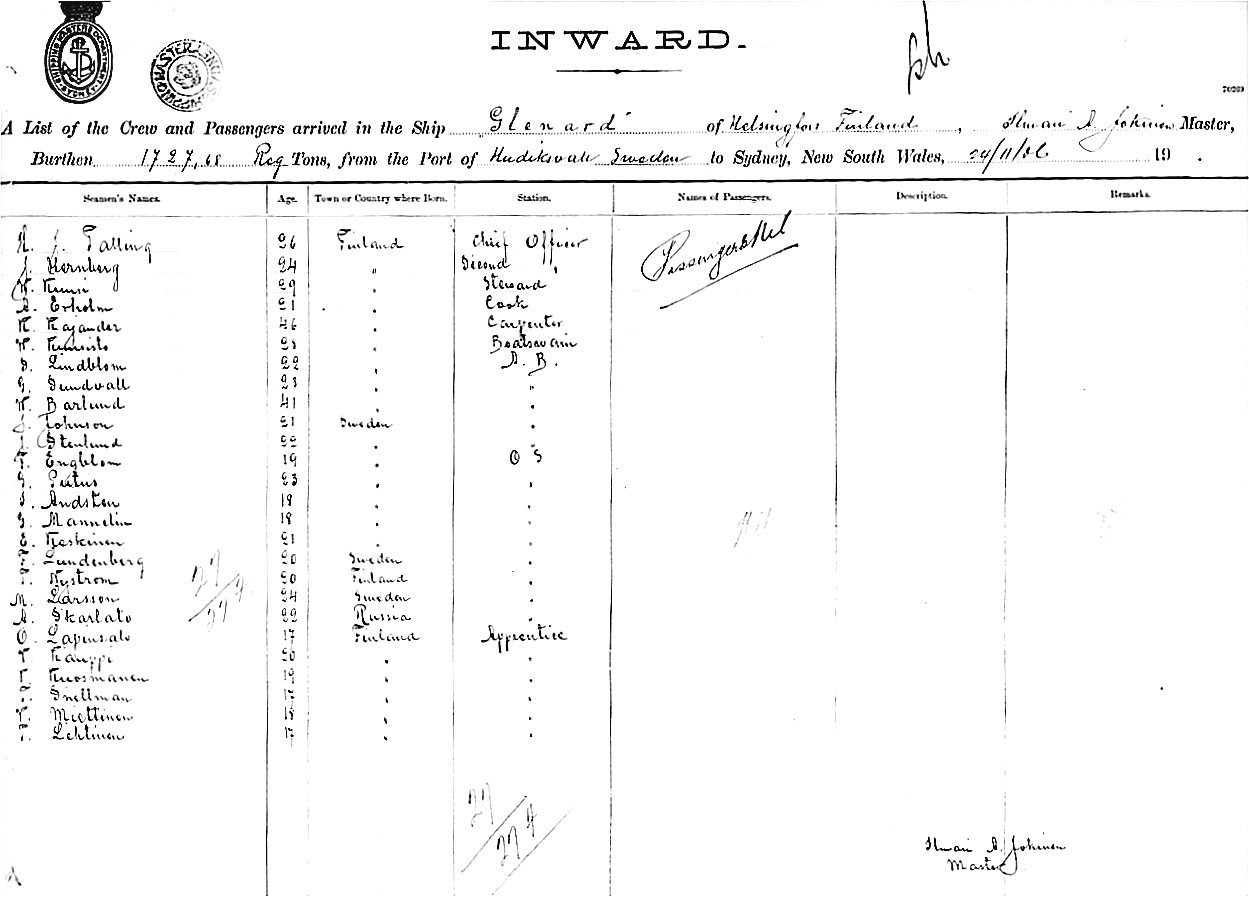 SHIPPING MASTERS DEPARTMENT SYDNEY
INWARD.
70269
A List of the Crew and Passengers arrived in the Ship "Glenard" of Helsingfors Finland, Ilmari A. Jokinen Master,
Burthen 1727,68 Reg Tons, from the Port of Hudiksvall Sweden to Sydney, New South Wales, 24/11/06 19 .
Seamen's Names. Age. Town or Country where Born. Station. Names of Passengers. Description. Remarks.
J. Talling 26 Finland Chief Officer Passengers Nil
J. Hernberg 24 " Second "
29 " Steward
A. Erholm 21 " Cook
K. Kajander 46 " Carpenter
" Boatswain
Lindblom 22 " A. B.
G. Sundvall 23 " "
W. Barlund 41 " "
J. Johnson 21 Sweden "
J. Stenlund 22 " "
F. Engblom 19 " O S
23 " "
Andsten 18 " "
G. Mannelin 18 " "
E. Koskinen 21 " "
F. Lundenberg 20 Sweden "
Nystrom 20 Finland "
M. Larsson 24 Sweden "
A. Skarlato 22 Russia "
O. Lapinsalo 17 Finland Apprentice
Kauppi 20 " "
Kuosmanen 19 " "
Snellman 17 " "
Miettinen 18 " "
Lehtinen 17 " "
Nil
27
27
27
27
Ilmari A. Jokinen
Master